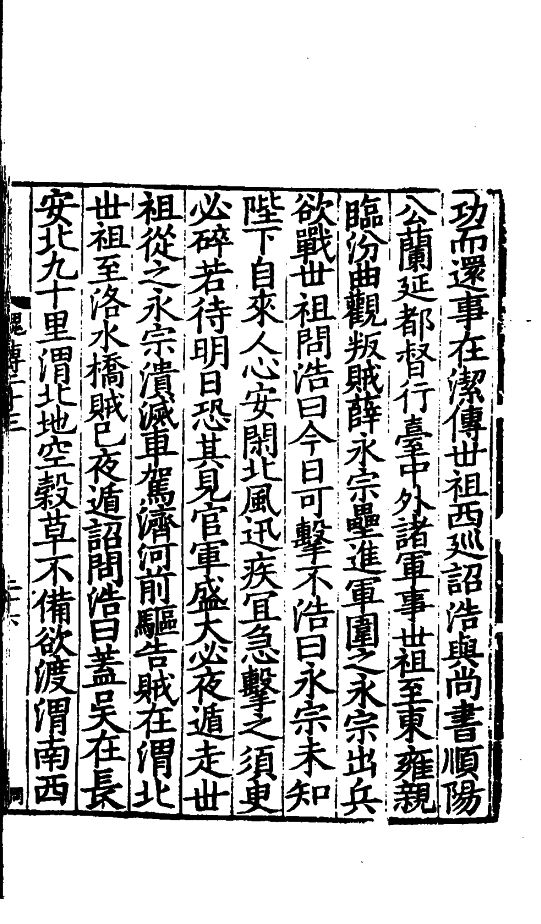 功而還事在潔傳世祖西廵詔浩與尚書順陽
公蘭延都督行臺中外諸軍事世祖至東雍親
臨汾曲觀叛賊薛永宗壘進軍圍之永宗出兵
欲戰世祖問浩曰今日可擊不浩曰永宗未知
陛下自來人心安閑北風迅疾宜急擊之須臾
必碎若待明日恐其見官軍盛大必夜遁走世
祖從之永宗潰滅車駕濟河前驅告賊在渭北
世祖至洛水橋賊已夜遁詔問浩曰蓋吳在長
安北九十里渭北地空穀草不備欲渡渭南西
魏傳二十三